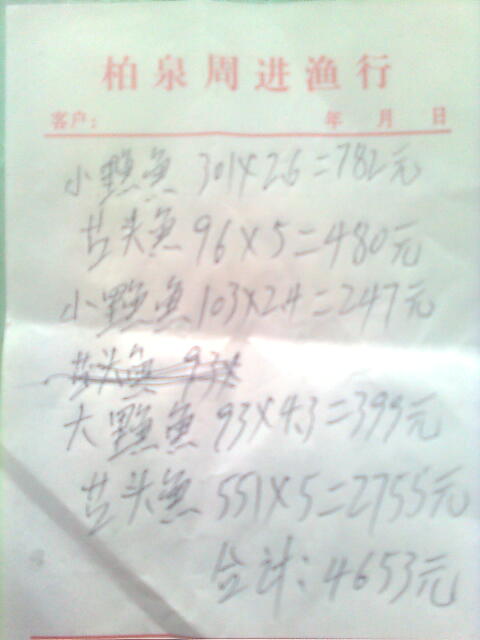 柏泉周进渔行
客户： 年 月 日
小鱼 301×2.6=782元
苦头鱼 96×5=480元
小鱼 103×2.4=247元
苦头鱼 93×
大鱼 93×4.3=399元
苦头鱼 551×5=2755元
合计：4653元